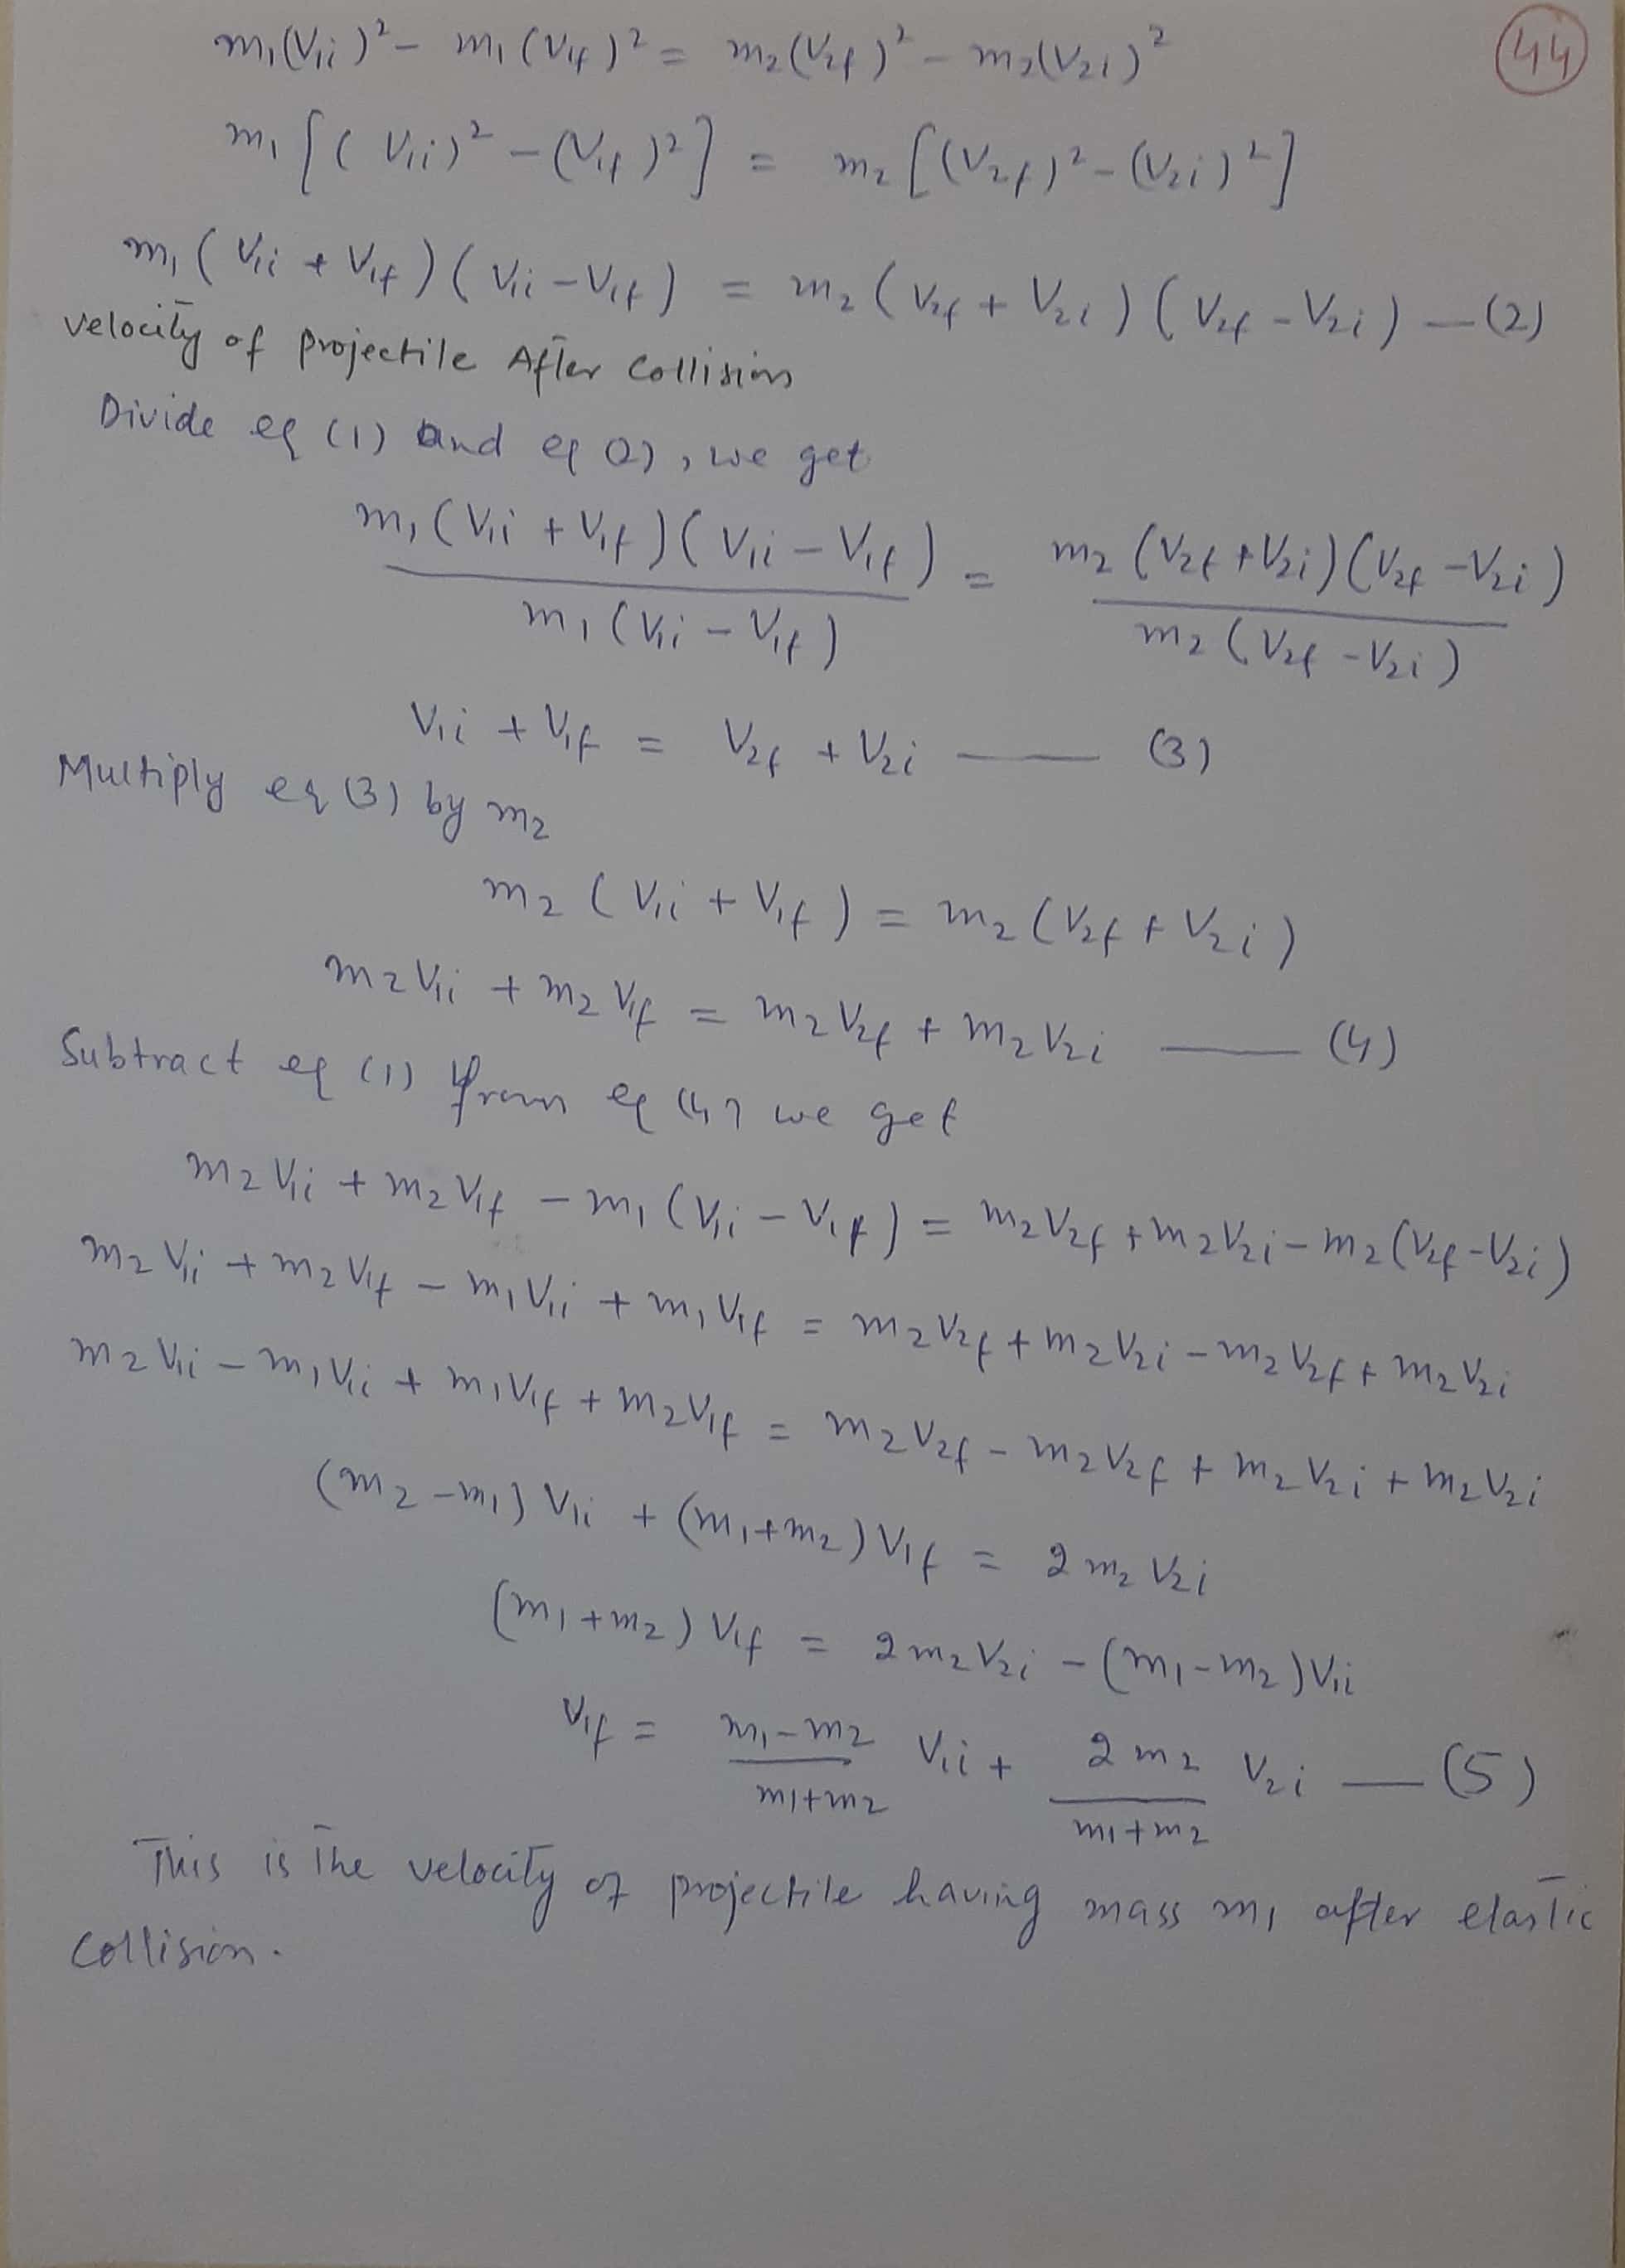 44
m₁(V₁i)² − m₁(V₁f)² = m₂(V₂f)² − m₂(V₂i)²
m₁[(V₁i)² − (V₁f)²] = m₂[(V₂f)² − (V₂i)²]
m₁(V₁i + V₁f)(V₁i − V₁f) = m₂(V₂f + V₂i)(V₂f − V₂i) — (2)
velocity of projectile After Collision
Divide eq (1) and eq (2), we get
m₁(V₁i + V₁f)(V₁i − V₁f) / m₁(V₁i − V₁f) = m₂(V₂f + V₂i)(V₂f − V₂i) / m₂(V₂f − V₂i)
V₁i + V₁f = V₂f + V₂i — (3)
Multiply eq (3) by m₂
m₂(V₁i + V₁f) = m₂(V₂f + V₂i)
m₂V₁i + m₂V₁f = m₂V₂f + m₂V₂i — (4)
Subtract eq (1) from eq (4) we get
m₂V₁i + m₂V₁f − m₁(V₁i − V₁f) = m₂V₂f + m₂V₂i − m₂(V₂f − V₂i)
m₂V₁i + m₂V₁f − m₁V₁i + m₁V₁f = m₂V₂f + m₂V₂i − m₂V₂f + m₂V₂i
m₂V₁i − m₁V₁i + m₁V₁f + m₂V₁f = m₂V₂f − m₂V₂f + m₂V₂i + m₂V₂i
(m₂ − m₁)V₁i + (m₁ + m₂)V₁f = 2m₂V₂i
(m₁ + m₂)V₁f = 2m₂V₂i − (m₁ − m₂)V₁i
V₁f = m₁ − m₂ / m₁ + m₂ V₁i + 2m₂ / m₁ + m₂ V₂i — (5)
This is the velocity of projectile having mass m₁ after elastic
collision.